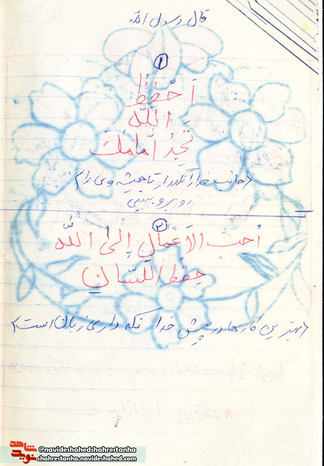 قال رسول الله
۱
اَحْفَظِ
اللّه
تجدُ اَمامك
(جانب خدا را نگهدار تا همیشه وی را
روبرو ببینی
۲
اُحب الاَعمالِ اِلیٰ اللّه
حِفظُ اللّسان
(بهترین کارها در پیش خدا نگه داری زبان است)
شاهد
نوید
@navideshahedshahrestanha
shahrestanha.navideshahed.com